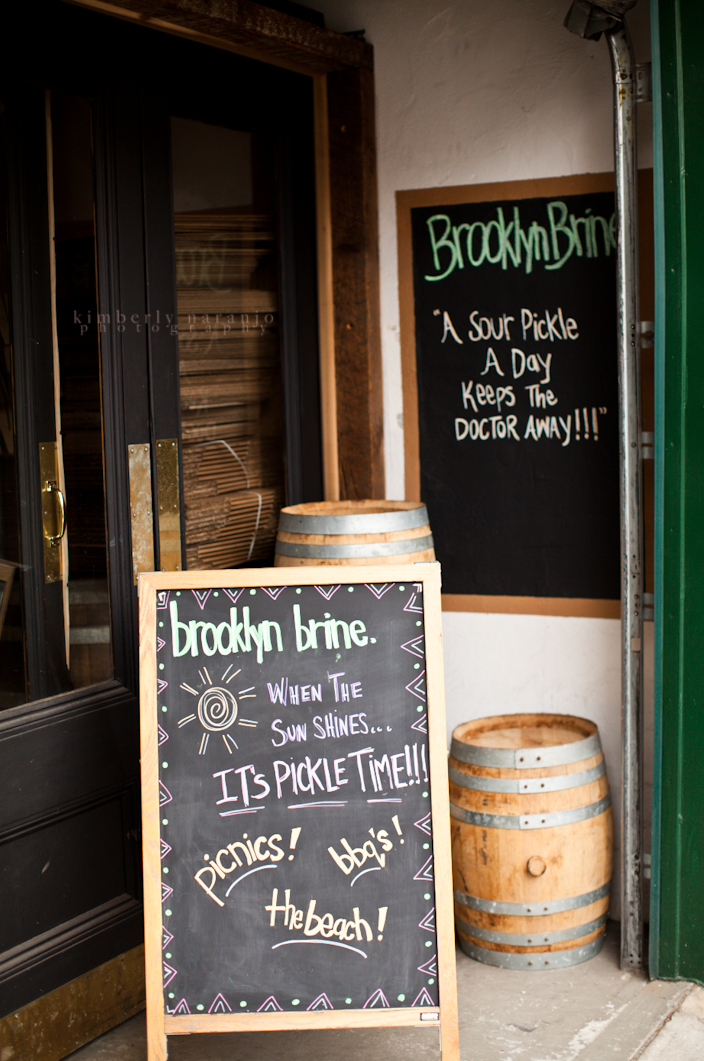 kimberly naranjo
photography
Brooklyn Brine
"A Sour Pickle
A Day
Keeps The
Doctor Away!!!"
brooklyn brine.
When The
Sun Shines...
It's Pickle Time!!!
picnics!
bbq's!
the beach!